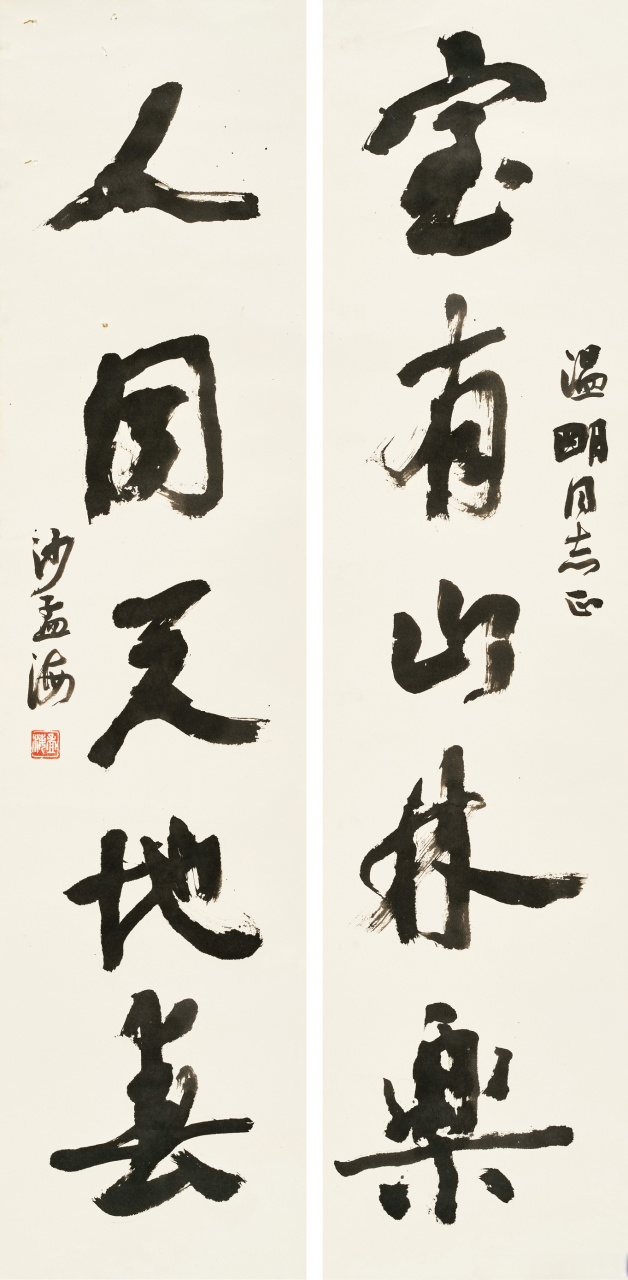 温明同志正
室有山林樂
人同天地春
沙孟海